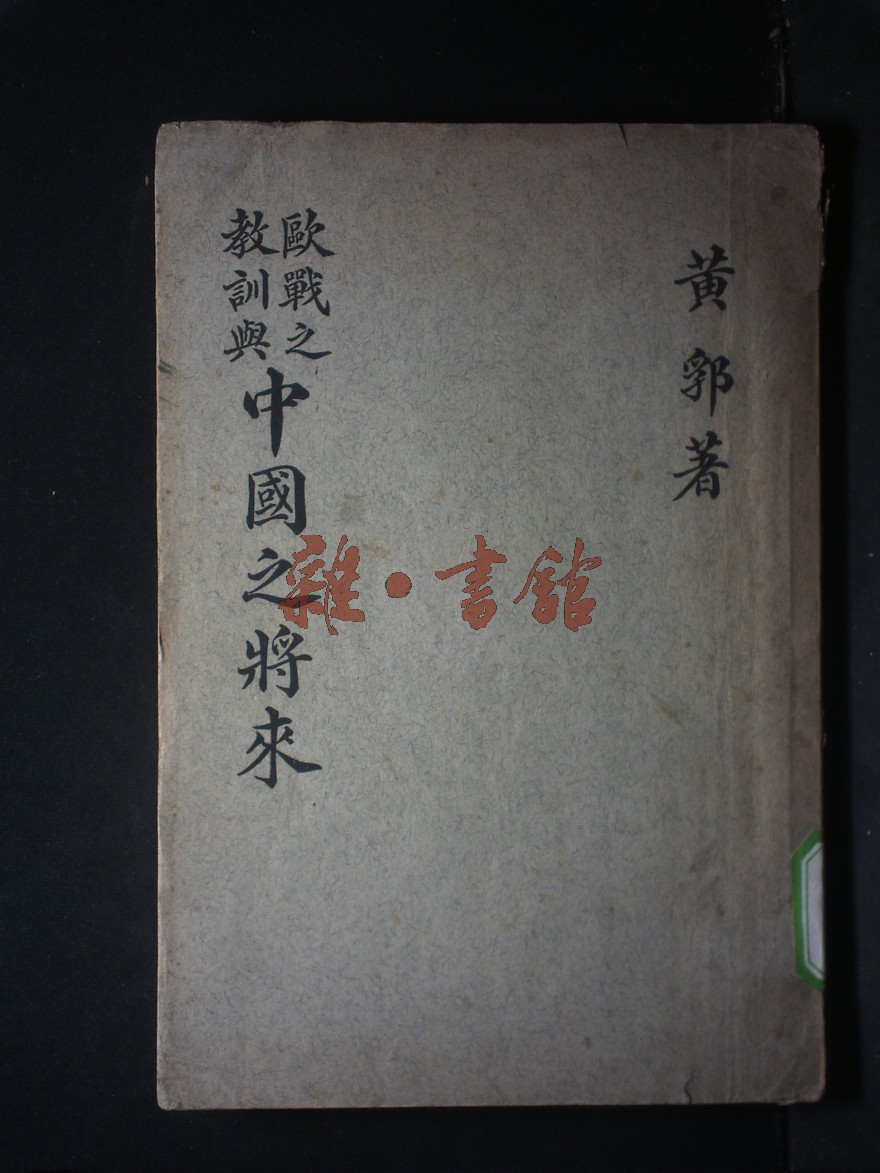 黃郛著
歐戰之
教訓與
中國之將來
雜·書館